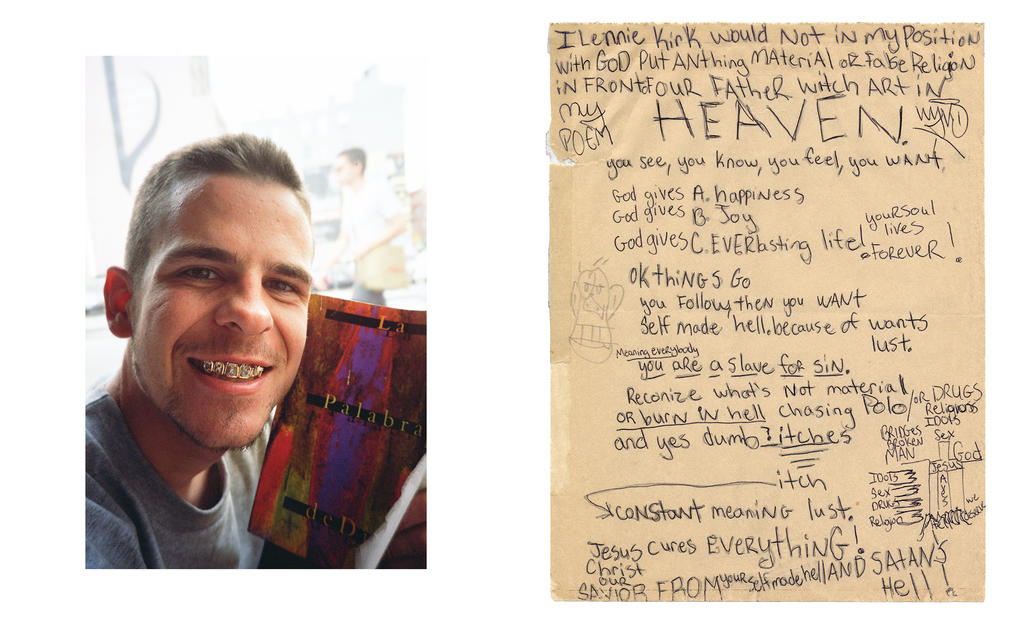 La
Palabra
de D
I Lennie Kirk would Not in my Position
with GOD Put ANthing MAteriAl or False Religion
in FRONt OF OUR FAtHER witch ARt iN
my HEAVEN.
POEM
you see, you know, you feel, you WANt,
God gives A. happiness
God gives B. Joy
God gives C. EVERlasting life!
your soul
lives
FOREVER!
OK things Go
you Follow, then you WANt
Self made hell. because of wants
lust.
Meaning everybody
you are a Slave for Sin.
Reconize what's Not material
OR burn in hell chasing Polo/or DRUGS
and yes dumb Bitches
Religions
IDOTS
Sex
BRIDGES
BROKEN
MAN
God
Jesus
IDOTS
Sex
DRUGS
Religion
we
itch
constant meaning lust.
Jesus cures EVERYthiNG!
Christ
our
SAVIOR FROM your self made hell AND SATANS
Hell!